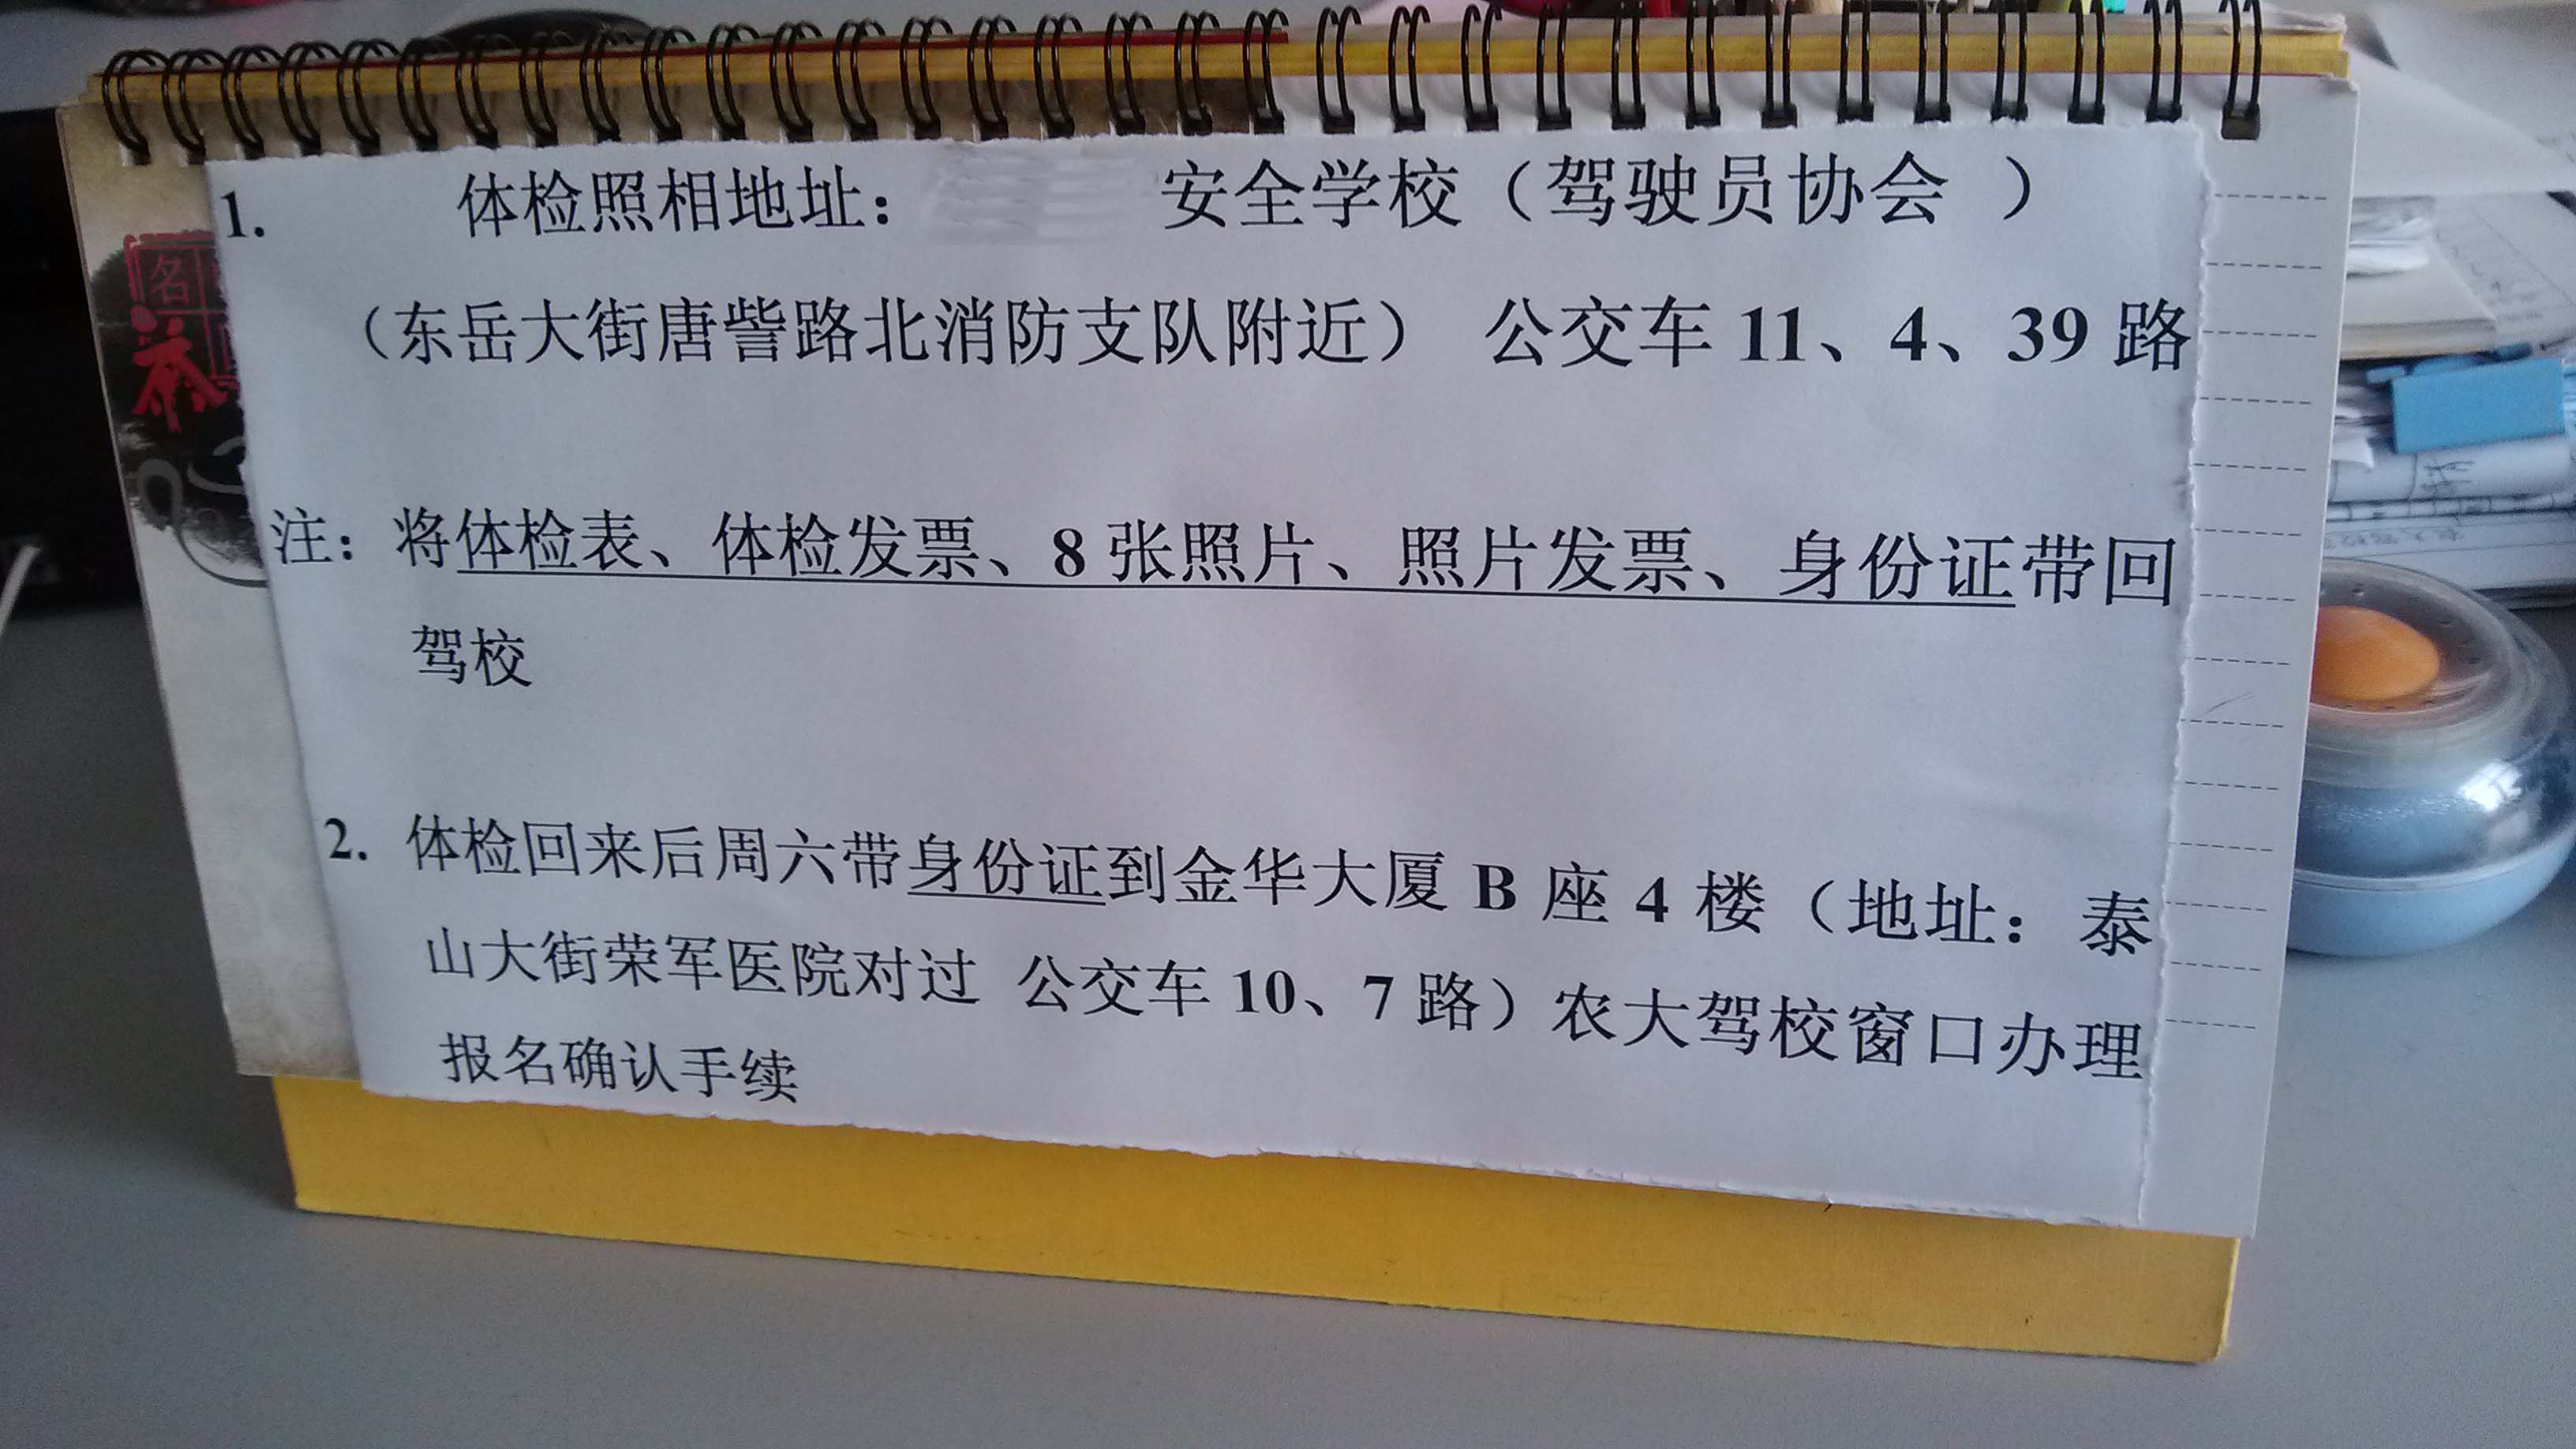 1. 体检照相地址： 安全学校（驾驶员协会 ）
（东岳大街唐訾路北消防支队附近） 公交车 11、4、39 路
注：将体检表、体检发票、8 张照片、照片发票、身份证带回
驾校
2. 体检回来后周六带身份证到金华大厦 B 座 4 楼（地址：泰
山大街荣军医院对过 公交车 10、7 路）农大驾校窗口办理
报名确认手续
名